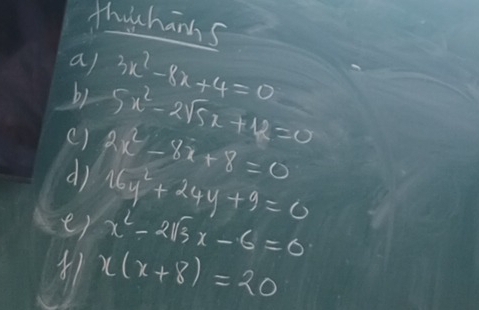 thực hành 5
a) 3x² - 8x + 4 = 0
b) 5x² - 2√5x + 12 = 0
c) 2x² - 8x + 8 = 0
d) 16y² + 24y + 9 = 0
e) x² - 2√3x - 6 = 0
f) x(x + 8) = 20